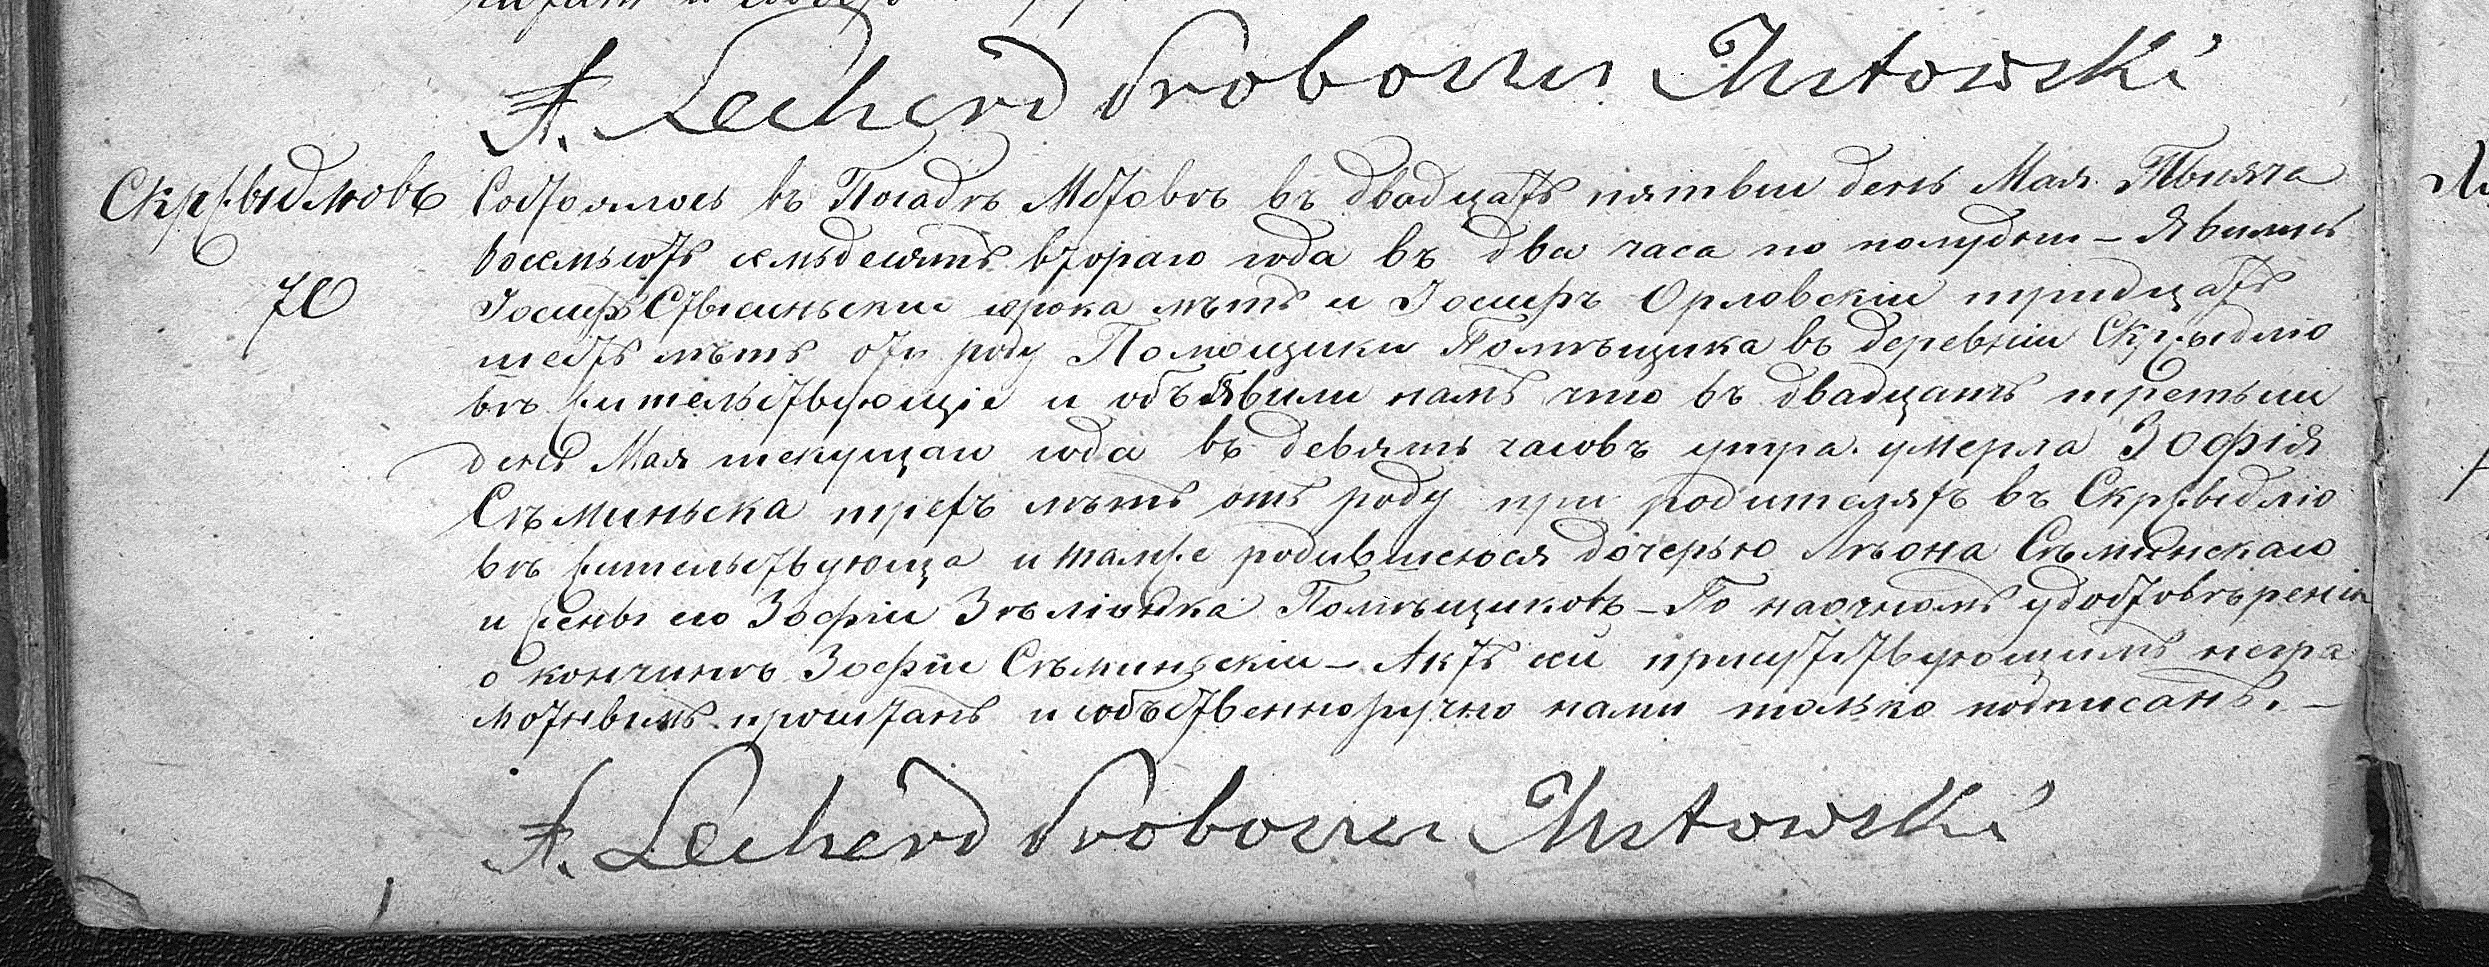 F. Lecherd Proboszcz Mstowski
Скржыдловъ Состоялось въ Посадѣ Мстовѣ въ двадцать пятвый день Мая Тысяча
восемьсотъ семьдесятъ втораго года въ два часа по полудни – Явились
70 Іосифъ Стысиньский сорока лѣтъ и Іосифъ Орловскій тридцать
шесть лѣтъ отъ роду Помощики Помѣщика въ деревніи Скржыдлю
вѣ жительствующіе и объявили намъ что въ двадцать третьий
день Мая текущаго года въ девять часовъ утра умерла Зофія
Сѣминьска трехъ лѣтъ отъ роду при родителяхъ въ Скржыдлю
вѣ жительствующа и тамже родившеюся дочерью Лѣона Сѣминскаго
и жены его Зофіи Помѣщиковъ – По наочномъ удостовѣреніи
о кончинѣ Зофіи Сѣминьскіи – Актъ сей присутствующимъ негра
мотнымъ прочитанъ и собственноручно нами только подписанъ. –
F. Lecherd Proboszcz Mstowski